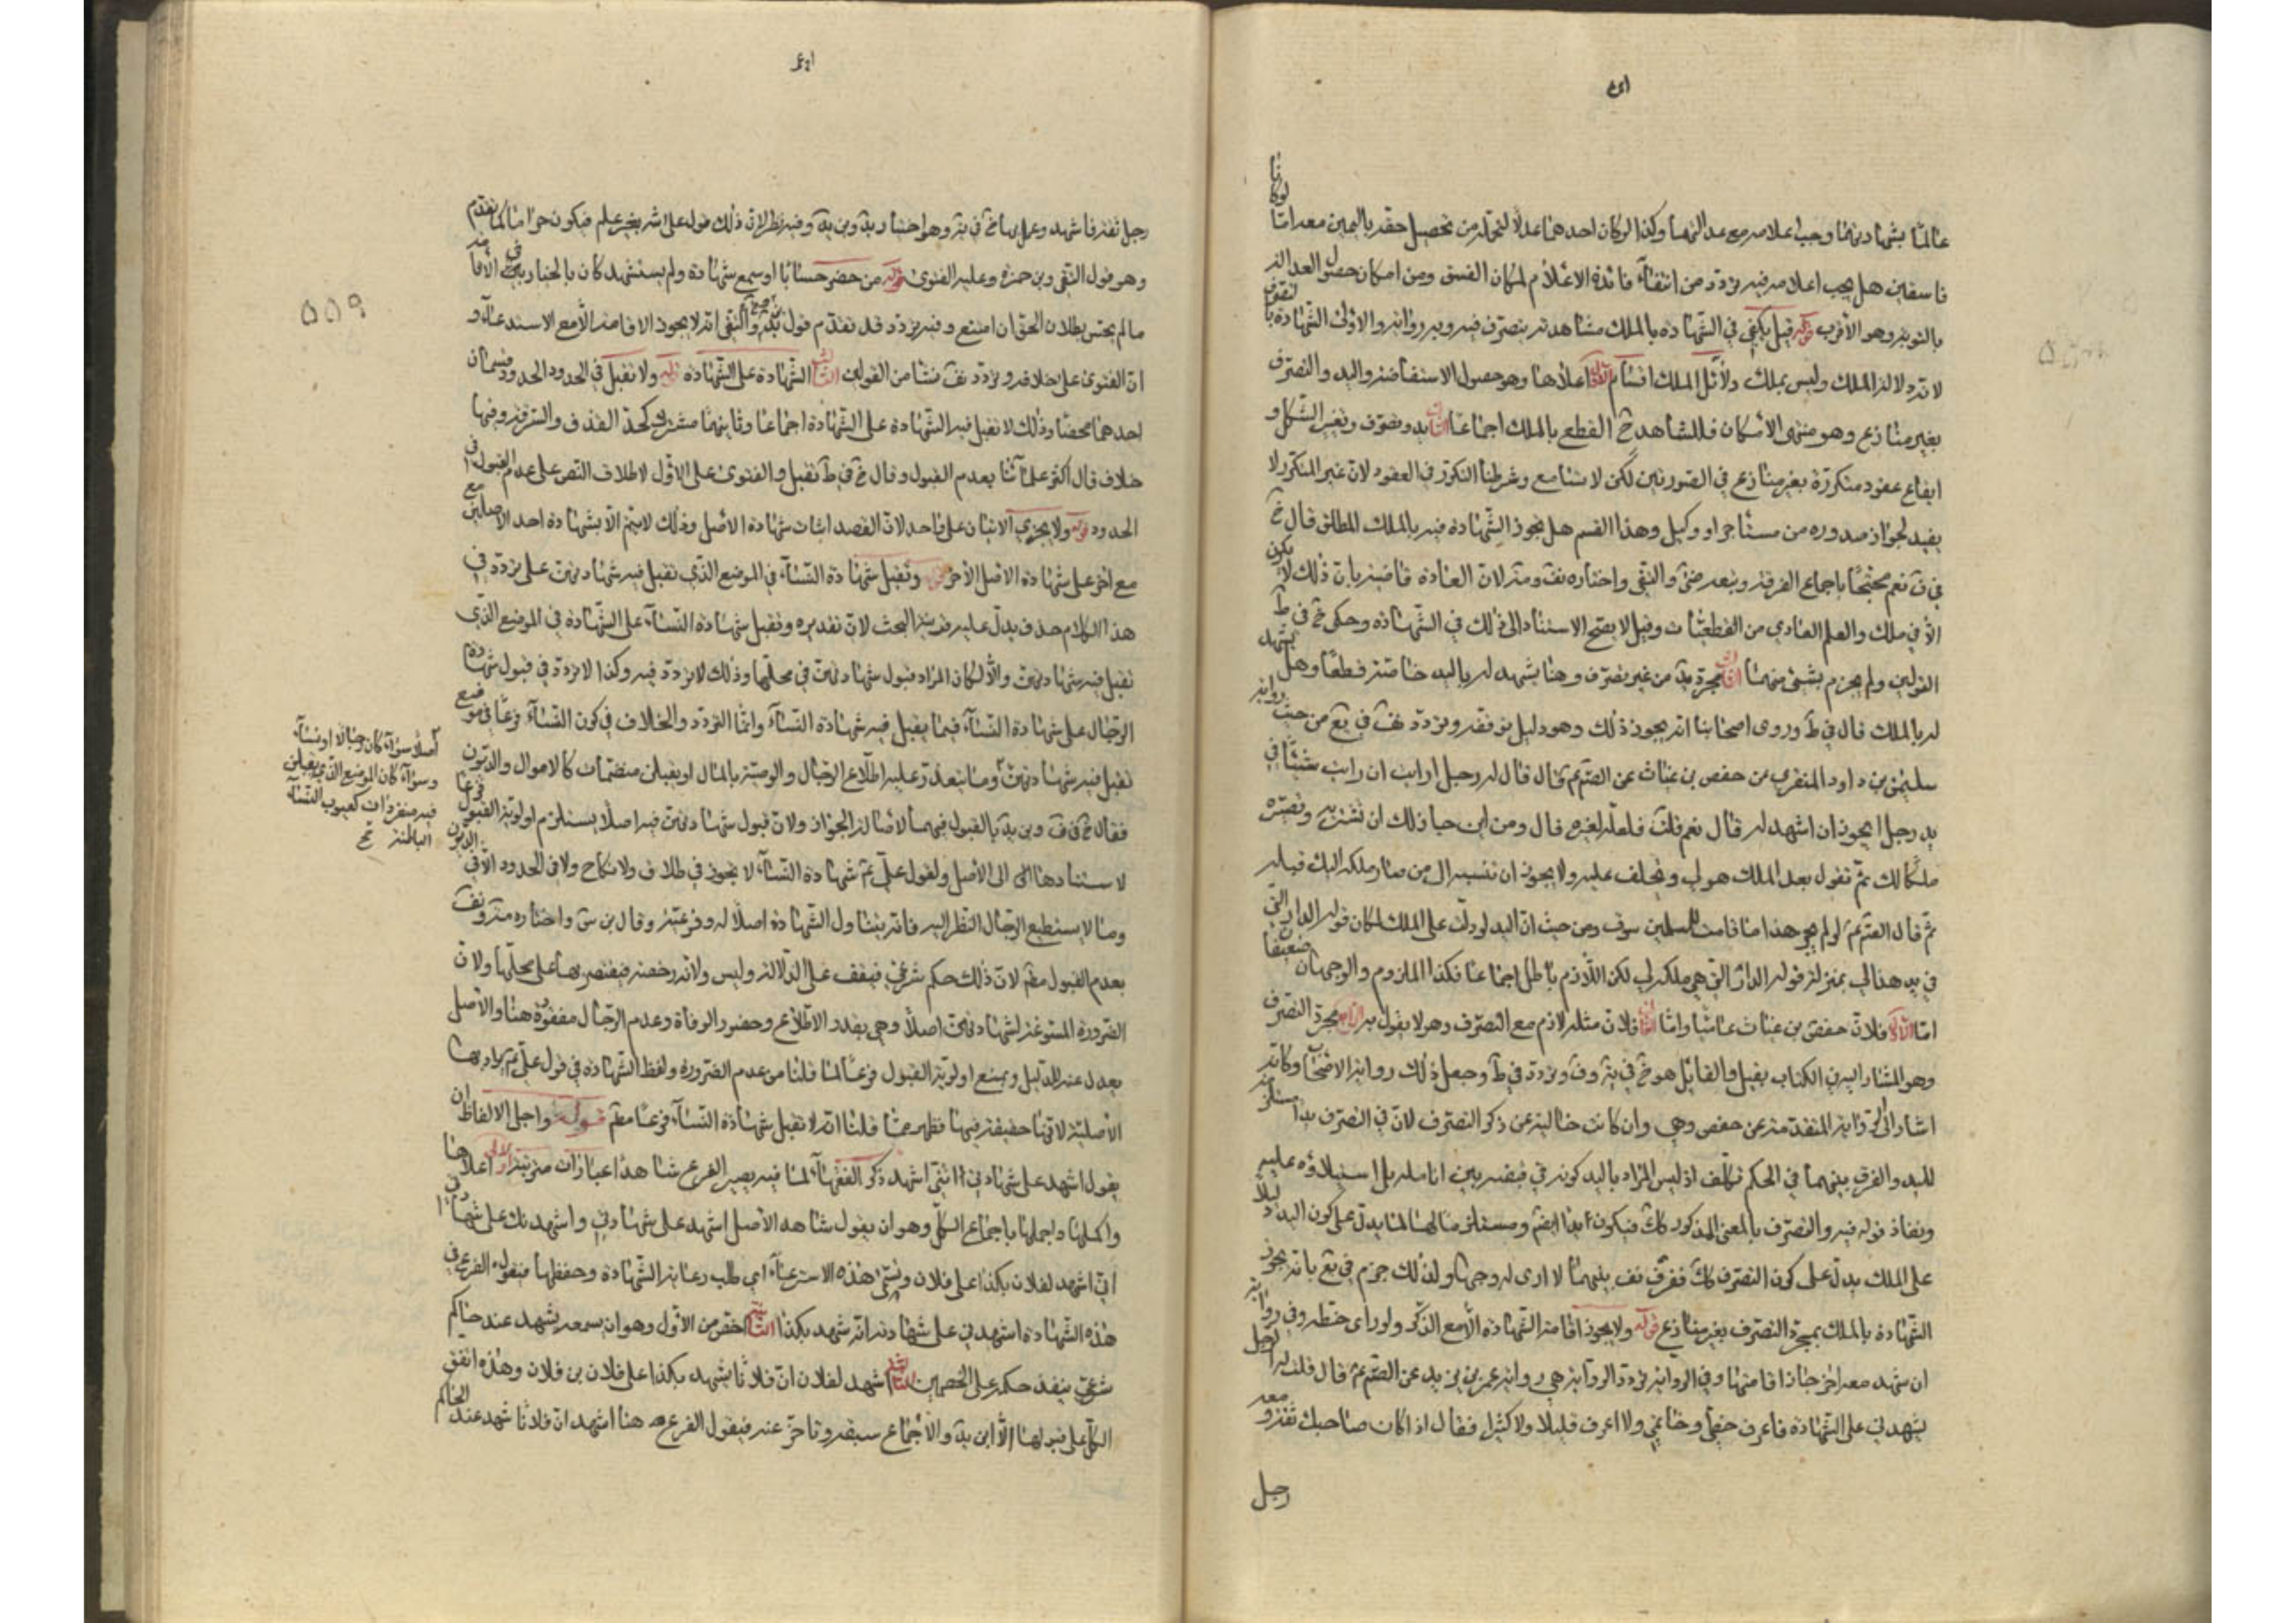 عالما بشهادتهما وجب اعلامه مع عدالتهما وكذا لو كان احدهما عدلا لتمكنه من تحصيل حقه باليمين معه اما لو كانا
فاسقين هل يجب اعلامه فيه تردد من انتفاء فائدة الاعلام لمكان الفسق ومن امكان حصول العدالة
بالتوبة وهو الأقرب قوله قيل يكفي في الشهادة بالملك مشاهدته يتصرف فيه وبه رواية والاولى الشهادة بالتصرف
لانه دلالة الملك وليس بملك دلائل الملك اقسام الاول اعلاها وهو حصول الاستفاضة واليد والتصرف
بغير منازع وهو منتهى الامكان فللشاهد ح القطع بالملك اجماعا الثاني يد وتصرف وتغير الشكل و
ايقاع عقود متكررة بغير منازع في الصورتين لكن لا تسامع وشرطنا التكرر في العقود لان غير المتكرر لا
يفيد لجواز صدوره من مستأجر او وكيل وهذا القسم هل يجوز الشهادة فيه بالملك المطلق قال خ
في ف نعم محتجا باجماع الفرقة وتبعه والتقى واختاره لان العادة قاضية بان ذلك لا يكون
الا في ملك والعلم العادي من القطعيات وقيل لا يصح الاستناد الى ذلك في الشهادة وحكى خ في ط
القولين ولم يجزم بشئ منهما الثالث مجرد يد من غير تصرف وهنا يشهد له باليد خاصة قطعا وهل يشهد
له بالملك قال في ط وروى اصحابنا انه يجوز ذلك وهو دليل توقفه وتردد في يع من حيث رواية
سليمن بن داود المنقري عن حفص بن غياث عن الصم عم قال قال له رجل ارايت ان رايت شيئا في
يد رجل ايجوز ان اشهد له قال نعم قلت فلعله لغيره قال ومن اين جاز لك ان تشتريه وتصيره
ملكا لك ثم تقول بعد الملك هو لي وتحلف عليه ولا يجوز ان تنسبه الى من صار ملكه اليك قبله
ثم قال الصم عم لو لم يجز هذا ما قامت للمسلمين سوق ومن حيث ان اليد لو دلت على الملك لكان قوله الدار التي
في يد هذا لي بمنزلة قوله الدار التي هي ملكه لي لكن اللازم باطل اجماعا فكذا الملزوم والوجهان ضعيفان
اما الاول فلان حفص بن غياث عامي واما الثاني فلان مثله لازم مع التصرف وهو لا يقول به الرابع مجرد التصرف
وهو المشار اليه في الكتاب بقيل والقائل هو خ في ية وف وتردد في ط وجعل ذلك رواية الاصحاب وكانه
اشار الى الرواية المتقدمة عن حفص وهي وان كانت خالية عن ذكر التصرف لان في التصرف يدا مستلزمة
لليد والفرق بينهما في الحكم تكلف اذ ليس المراد باليد كونه في قبضة بين انامله بل استيلاؤه عليه
ونفاذ قوله فيه والتصرف بالمعنى المذكور كك فيكون يدا ايضم ومستلزما لها لما يدل على كون اليد دليلا
على الملك يدل على كون التصرف كك ففرق بينهما لا ارى له وجها ولذلك جزم في يع بانه يجوز
الشهادة بالملك بمجرد التصرف بغير منازع قوله ولا يجوز اقامة الشهادة الا مع الذكر ولو راى خطه وفي رواية
ان شهد معه اخر جاز اقامتها وفي الرواية تردد الرواية هي رواية عمر بن يزيد عن الصم عم قال قلت له الرجل
يشهدني على الشهادة فاعرف خطي وخاتمي ولا اعرف قليلا ولا كثيرا فقال اذا كان صاحبك ثقة ومعه
رجل
رجل ثقة فاشهد وعليها خ في ية وهو اختيار يد وبن يد وفيه نظر لان ذلك قول على الله بغير علم فيكون حراما كما تقدم
وهو قول التقى وبن حمزة وعليه الفتوى قوله من حضر حسابا او سمع شهادة ولم يستشهد كان بالخيار في الاقامة
ما لم يخش بطلان الحق ان امتنع وفيه تردد قد تقدم قول والتقى انه لا يجوز الاقامة الا مع الاستدعاء و
ان الفتوى على خلافه وتردد نشا من القولين الثالث الشهادة على الشهادة قوله ولا تقبل في الحدود الحدود قسمان
احدهما محضا وذلك لا تقبل فيه الشهادة على الشهادة اجماعا وثانيهما مشترك كحد القذف والسرقة وفيها
خلاف قال اكثر علمائنا بعدم القبول وقال خ في ط تقبل والفتوى على الاول لاطلاق النص على عدم القبول في
الحدود قوله ولا يجزي الا اثنان على واحد لان القصد اثبات شهادة الاصل وذلك لا يتم الا بشهادة احد الاصلين مع
مع اخر على شهادة الاصل الاخر قوله وتقبل شهادة النساء في الموضع الذي تقبل فيه شهادتهن على تردد في
هذا الكلام حذف يدل عليه قرينة البحث لان تقديره وتقبل شهادة النساء على الشهادة في الموضع الذي
تقبل فيه شهادتهن والا لكان المراد قبول شهادتهن في محلها وذلك لا تردد فيه وكذا لا تردد في قبول شهادة
الرجال على شهادة النساء فيما يقبل فيه شهادة النساء وانما التردد والخلاف في كون النساء فرعا في موضع
تقبل فيه شهادتهن وما يتعذر عليه اطلاع الرجال والوصية بالمال او يقبلن منضمات كالاموال والديون
فقال خ في ف وبن يد بالقبول فيهما لاصالة الجواز ولان قبول شهادتهن فيه اصلا يستلزم اولوية القبول فرعا
لاستنادها الى الاصل ولقول علي عم شهادة النساء لا تجوز في طلاق ولا نكاح ولا في الحدود الا في الديون
وما لا يستطيع الرجال النظر اليه فانه يتناول الشهادة اصلا له وفرعية وقال بن س واختاره
بعدم القبول مطم لان ذلك حكم شرعي فيقف على الدلالة وليس ولانه رخصة فيقتصر بها على محلها ولان
الضرورة المسوغة لشهادتهن اصلا وهي بعد الاطلاع وحضور الوفاة وعدم الرجال مفقودة هنا والاصل
يعدل عند الدليل ويمنع اولوية القبول فرعا لما قلنا من عدم الضرورة ولفظ الشهادة في قول علي عم يراد بها
الأصلية لانها حقيقة فيها فظهر مما قلنا انه لا تقبل شهادة النساء فرعا مطم قوله واجلى الالفاظ ان
يقول اشهد على شهادتي انني اشهد ذكر الفقهاء لما فيه يصير الفرع شاهدا عبارات مترتبة الاولى اعلاها
واكملها واجملها باجماع الكل وهو ان يقول شاهد الاصل اشهد على شهادتي واشهدتك على شهادتي
اني اشهد لفلان بكذا على فلان وتسمى هذه الاسترعاء اي طلب رعاية الشهادة وحفظها فيقول الفرع في
هذه الشهادة اشهدني على شهادته انه شهد بكذا الثانية اخفض من الاول وهو ان يسمعه يشهد عند حاكم
شرعي ينفذ حكمه على الخصمين الثالثة اشهد لفلان ان فلانا يشهد بكذا على فلان بن فلان وهذه اتفق
الكل على قبولها الا ابن يد والاجماع سبقه وتاخر عنه فيقول الفرع هنا اشهد ان فلانا شهد عند الحاكم
اصلا سواء كان رجالا او نساء
وسواء كان الموضع الذي يقبلن
فيه منفردات كعيوب النساء
الباطنة
٥٥٩